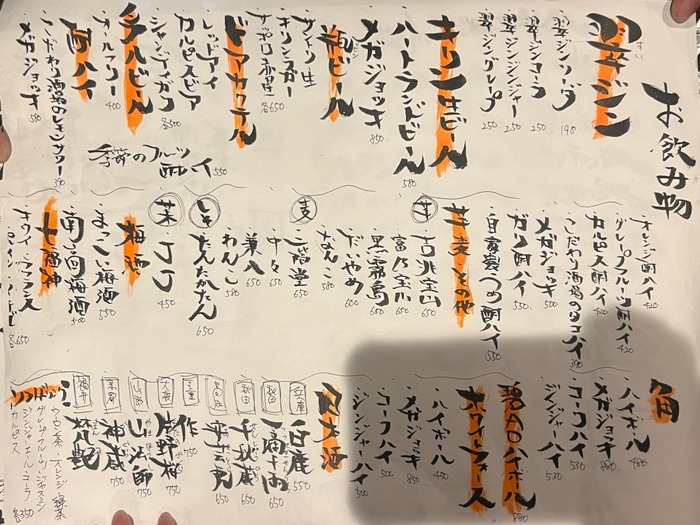 お飲み物
翠ジン
・翠ジンソーダ 190
・翠ジンコーラ 250
・翠ジンジンジャー 250
・翠ジングレープ 250
キリン生ビール
・ハートランドビール 580
・メガジョッキ 850
瓶ビール
・サントリ生
・キリンラガー
・サッポロ赤星 各650
ビアカクテル
・レッドアイ
・カルピスビア
・シャンディガフ 各500
ノンアルビール
・オールフリー 400
酎ハイ
・こだわり酒場のレモンサワー 390
・メガジョッキ 580
季節のフルーツ酎ハイ 550
・オレンジ酎ハイ 420
・グレープフルーツ酎ハイ 420
・カルピス酎ハイ 420
・こだわり酒場のタコハイ 390
・メガジョッキ 500
・ガリ酎ハイ 530
・自家製つめ酎ハイ 550
芋麦その他
芋
・吉兆宝山 650
・富乃宝山 650
・黒霧島 650
・だいやめ 600
・なんこ 580
麦
・二階堂 650
・中々 650
・兼八 650
・わんこ 580
しそ
・たんたかたん 650
米
・JJ 450
梅酒
・まっこい梅酒 550
・南高梅酒 500
七福神
・キウイ・ラフランス
各650
角
・ハイボール 480
・メガジョッキ 880
・コークハイ 530
・ジンジャーハイ 530
翠AOハイボール 580
ホワイトホース
・ハイボール 450
・メガジョッキ 850
・コークハイ 500
・ジンジャーハイ 500
日本酒
兵庫 白鹿 550
秋田 高清水 650
秋田 千秋蔵 650
三重 作 750
大阪 片野桜 750
山形 山法師 750
京都 神蔵 750
福井 梵艶
ソフトドリンク
ウーロン茶・オレンジ・緑茶
グレープフルーツ・ジャスミン
ジンジャーエール・コーラ
カルピス 各350